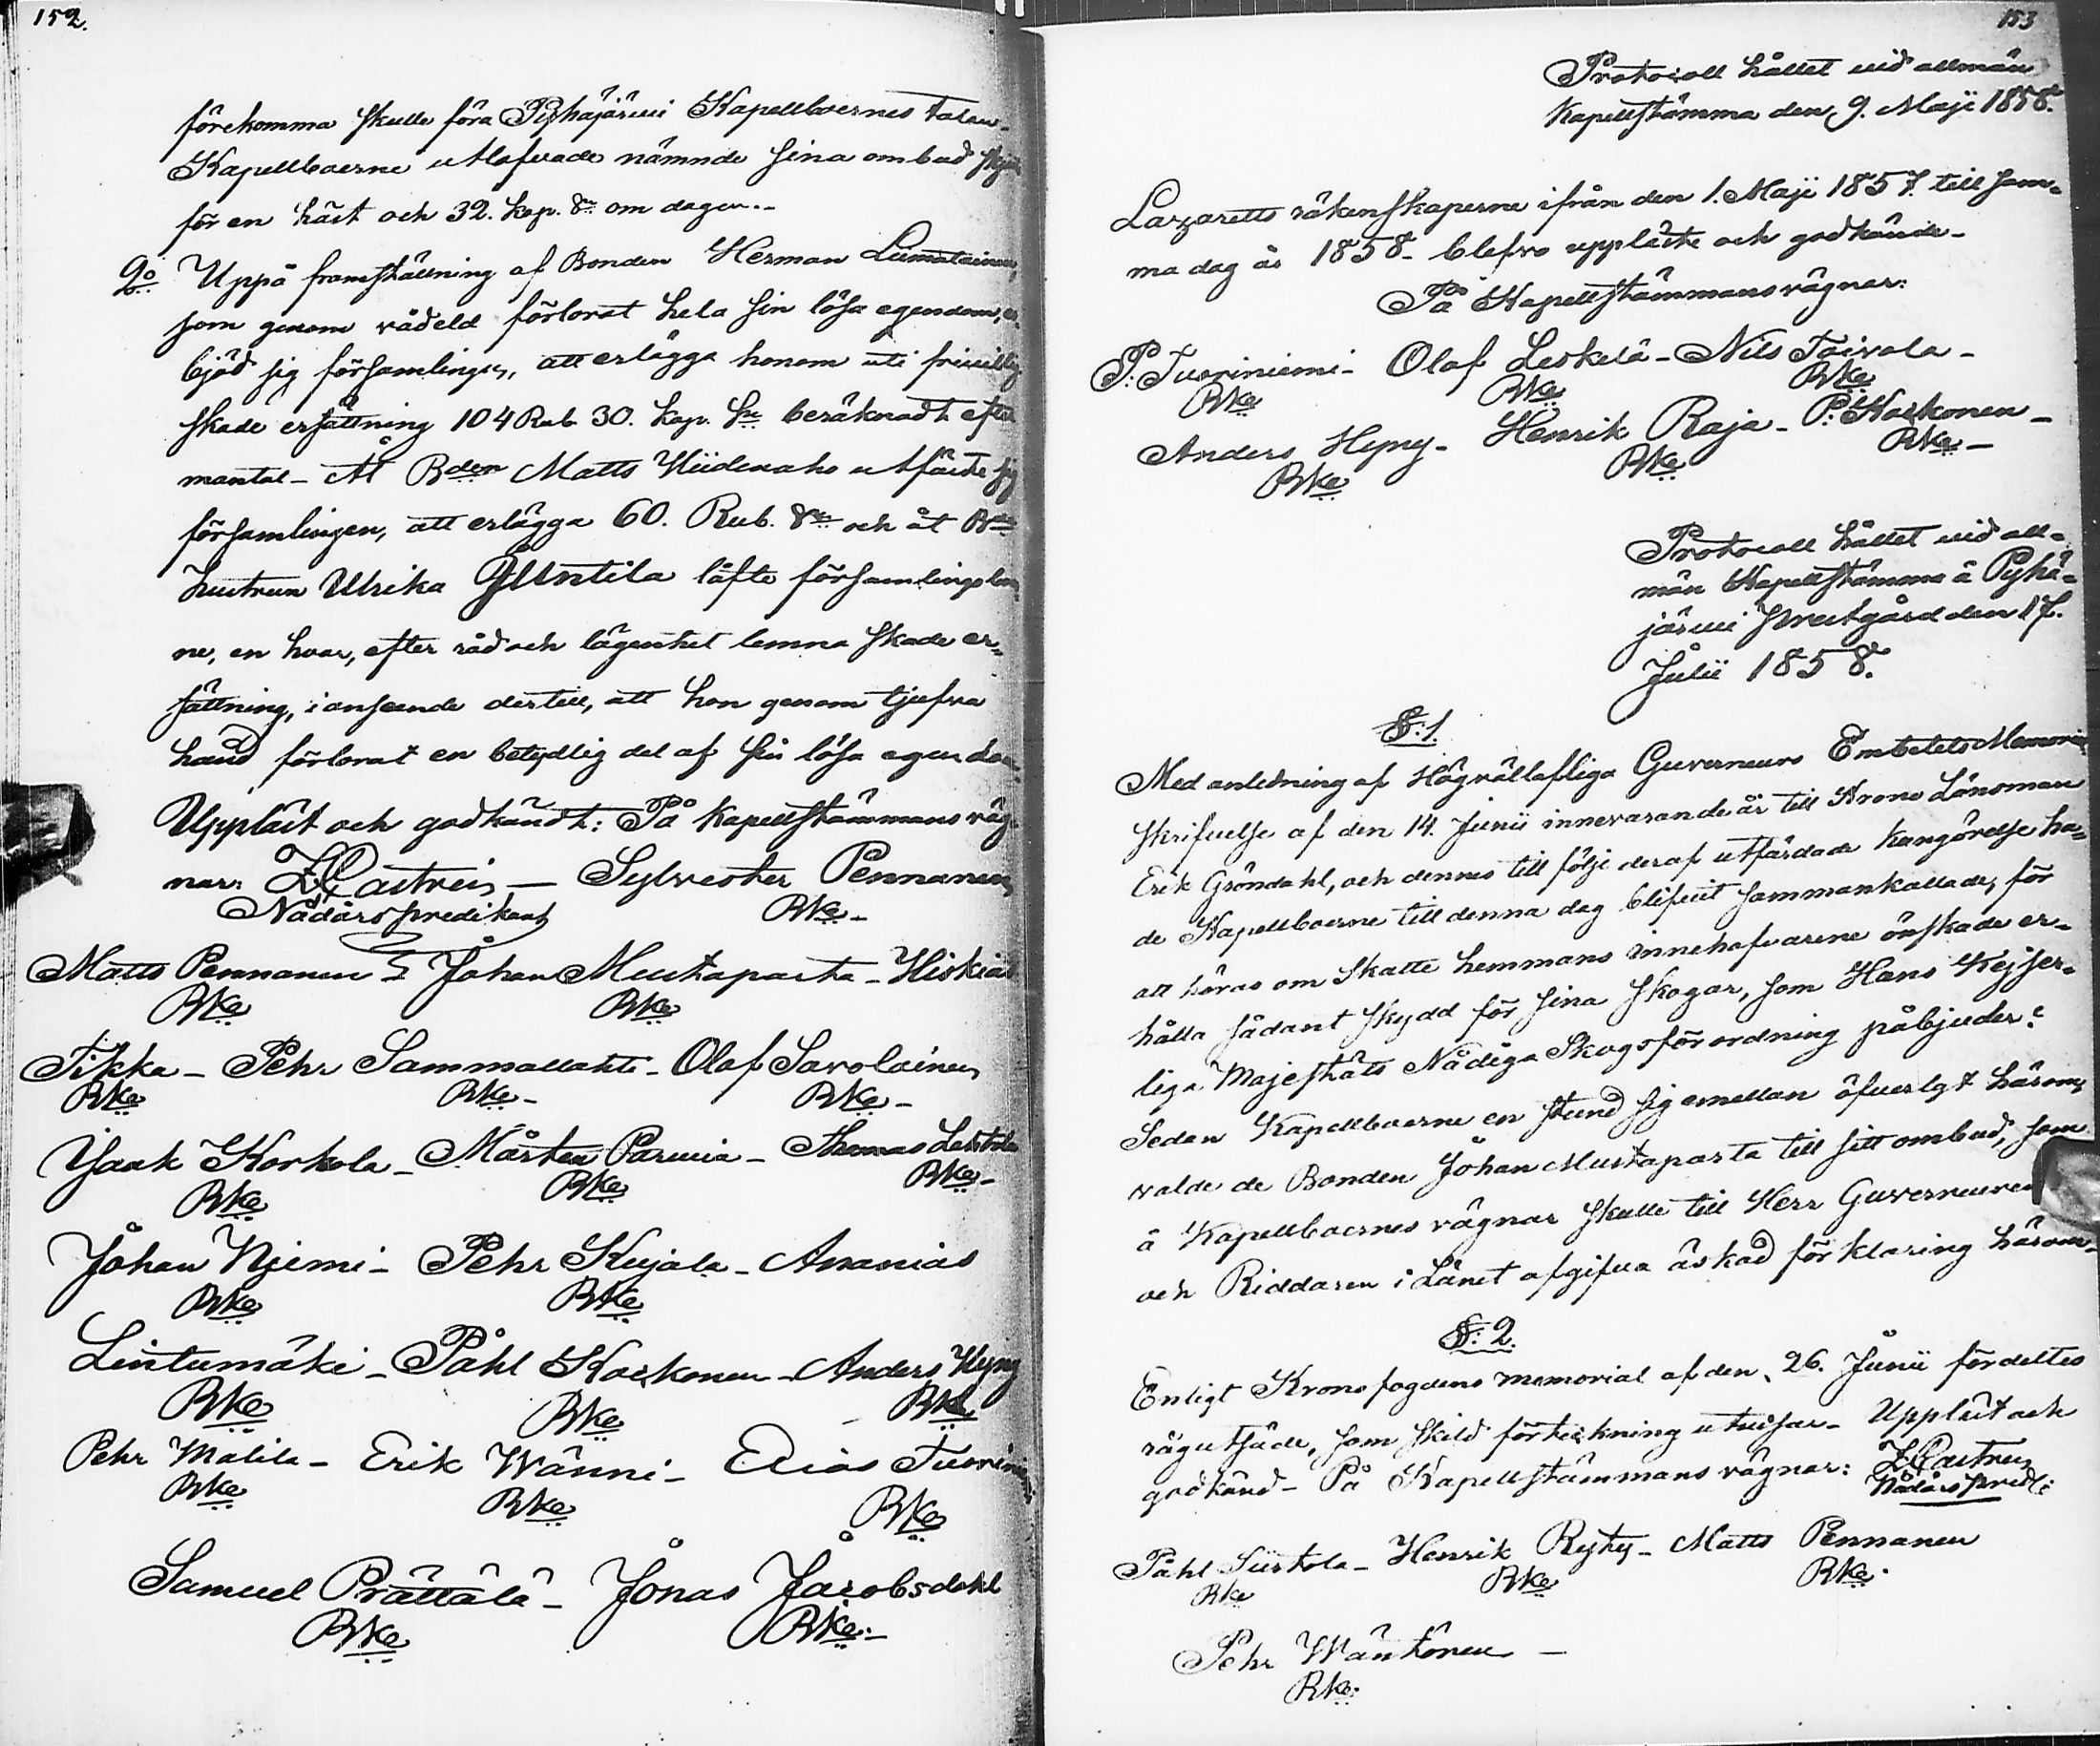 152.
förekomma skulle föra Pyhäjärvi Kapellboernes talan.
Kapellboerne utlofvade nämnde sina ombud skjuts
för en häst och 32. kop. Sr. om dagen.-
9o Uppå framställning af Bonden Herman Liimatainen,
som genom vådeld förlorat hela sin lösa egendom,
bjöd sig församlingen, att erlägga honom uti frivillig
skade ersättning 104 Rub. 30. kop. Sr beräknadt efter
mantal - Åt Bden Matts Hiidenaho utfäste sig
församlingen, att erlägga 60. Rub. Sr och åt Bde
hustrun Ulrika Junttila låfte församlingsboer
ne, en hvar, efter råd och lägenhet lemna skade er=
sättning, i anseende dertill, att hon genom tjufva
hand förlorat en betydlig del af sin lösa egendom.
Uppläst och godkändt: På Kapellstämmans väg=
nar: Z Castrén — Sylvester Pennanen
Nådårspredikant Bke -
Matts Pennanen - Johan Mustaparta - Hiskias
Bke Bke
Tikka - Pehr Sammallahti - Olof Savolainen
Bke Bke - Bke -
Isaak Korkola - Mårten Parvia - Thomas Leskelä
Bke Bke Bke -
Johan Njemi - Pehr Kujala - Ananias
Bke Bke
Lintumäki - Påhl Koskonen - Anders Hyny
Bke Bke Bke
Pehr Malila - Erik Wänni - Elias Tuoriniemi
Bke Bke Bke
Samuel Prättälä - Jonas Jacobsdahl
Bke Bke -
153
Protocoll hållet vid allmän
Kapellstämma den 9. Maji 1858.
Lazaretts räkenskaperne ifrån den 1. Maji 1857. till sam=
ma dag år 1858 - blefvo uppläste och godkände -
På Kapellstämmans vägnar:
P: Tuoriniemi - Olof Leskelä - Nils Toivola -
Bke Bke Bke
Anders Hyny - Henrik Raja - P: Koskonen -
Bke Bke Bke -
Protocoll hållet vid all=
män Kapellstämma å Pyhä=
järvi Prestgård den 17.
Julii 1858.
§: 1.
Med anledning af Högvällofliga Guverneurs Embetets Memorial
skrifvelse af den 14. Junii innevarande år till Krono Länsman
Erik Gröndahl, och dennes till följe deraf utfärdade kungörelse ha=
de Kapellboerne till denna dag blifvit sammankallade, för
att höras om Skatte hemmans innehafvarene önskade er=
hålla sådant skydd för sina skogar, som Hans Kejser=
liga Majestäts Nådiga Skogsförordning påbjuder?
Sedan Kapellboerne en stund sig emellan öfverlagt härom,
valde de Bonden Johan Mustaparta till sitt ombud, som
å Kapellboernes vägnar skulle till Herr Guverneuren
och Riddaren i Länet afgifva äskad förklaring härom -
§: 2.
Enligt Krono fogdens memorial af den 26. Junii fördeltes
rågutsäde, som skild förteckning utvisar - Uppläst och
godkänd - På Kapellstämmans vägnar: Z Castrén
Nådårs pred:
Påhl Siirtola - Henrik Ryhy - Matts Pennanen
Bke Bke Bke.
Pehr Wäntönen —
Bke.